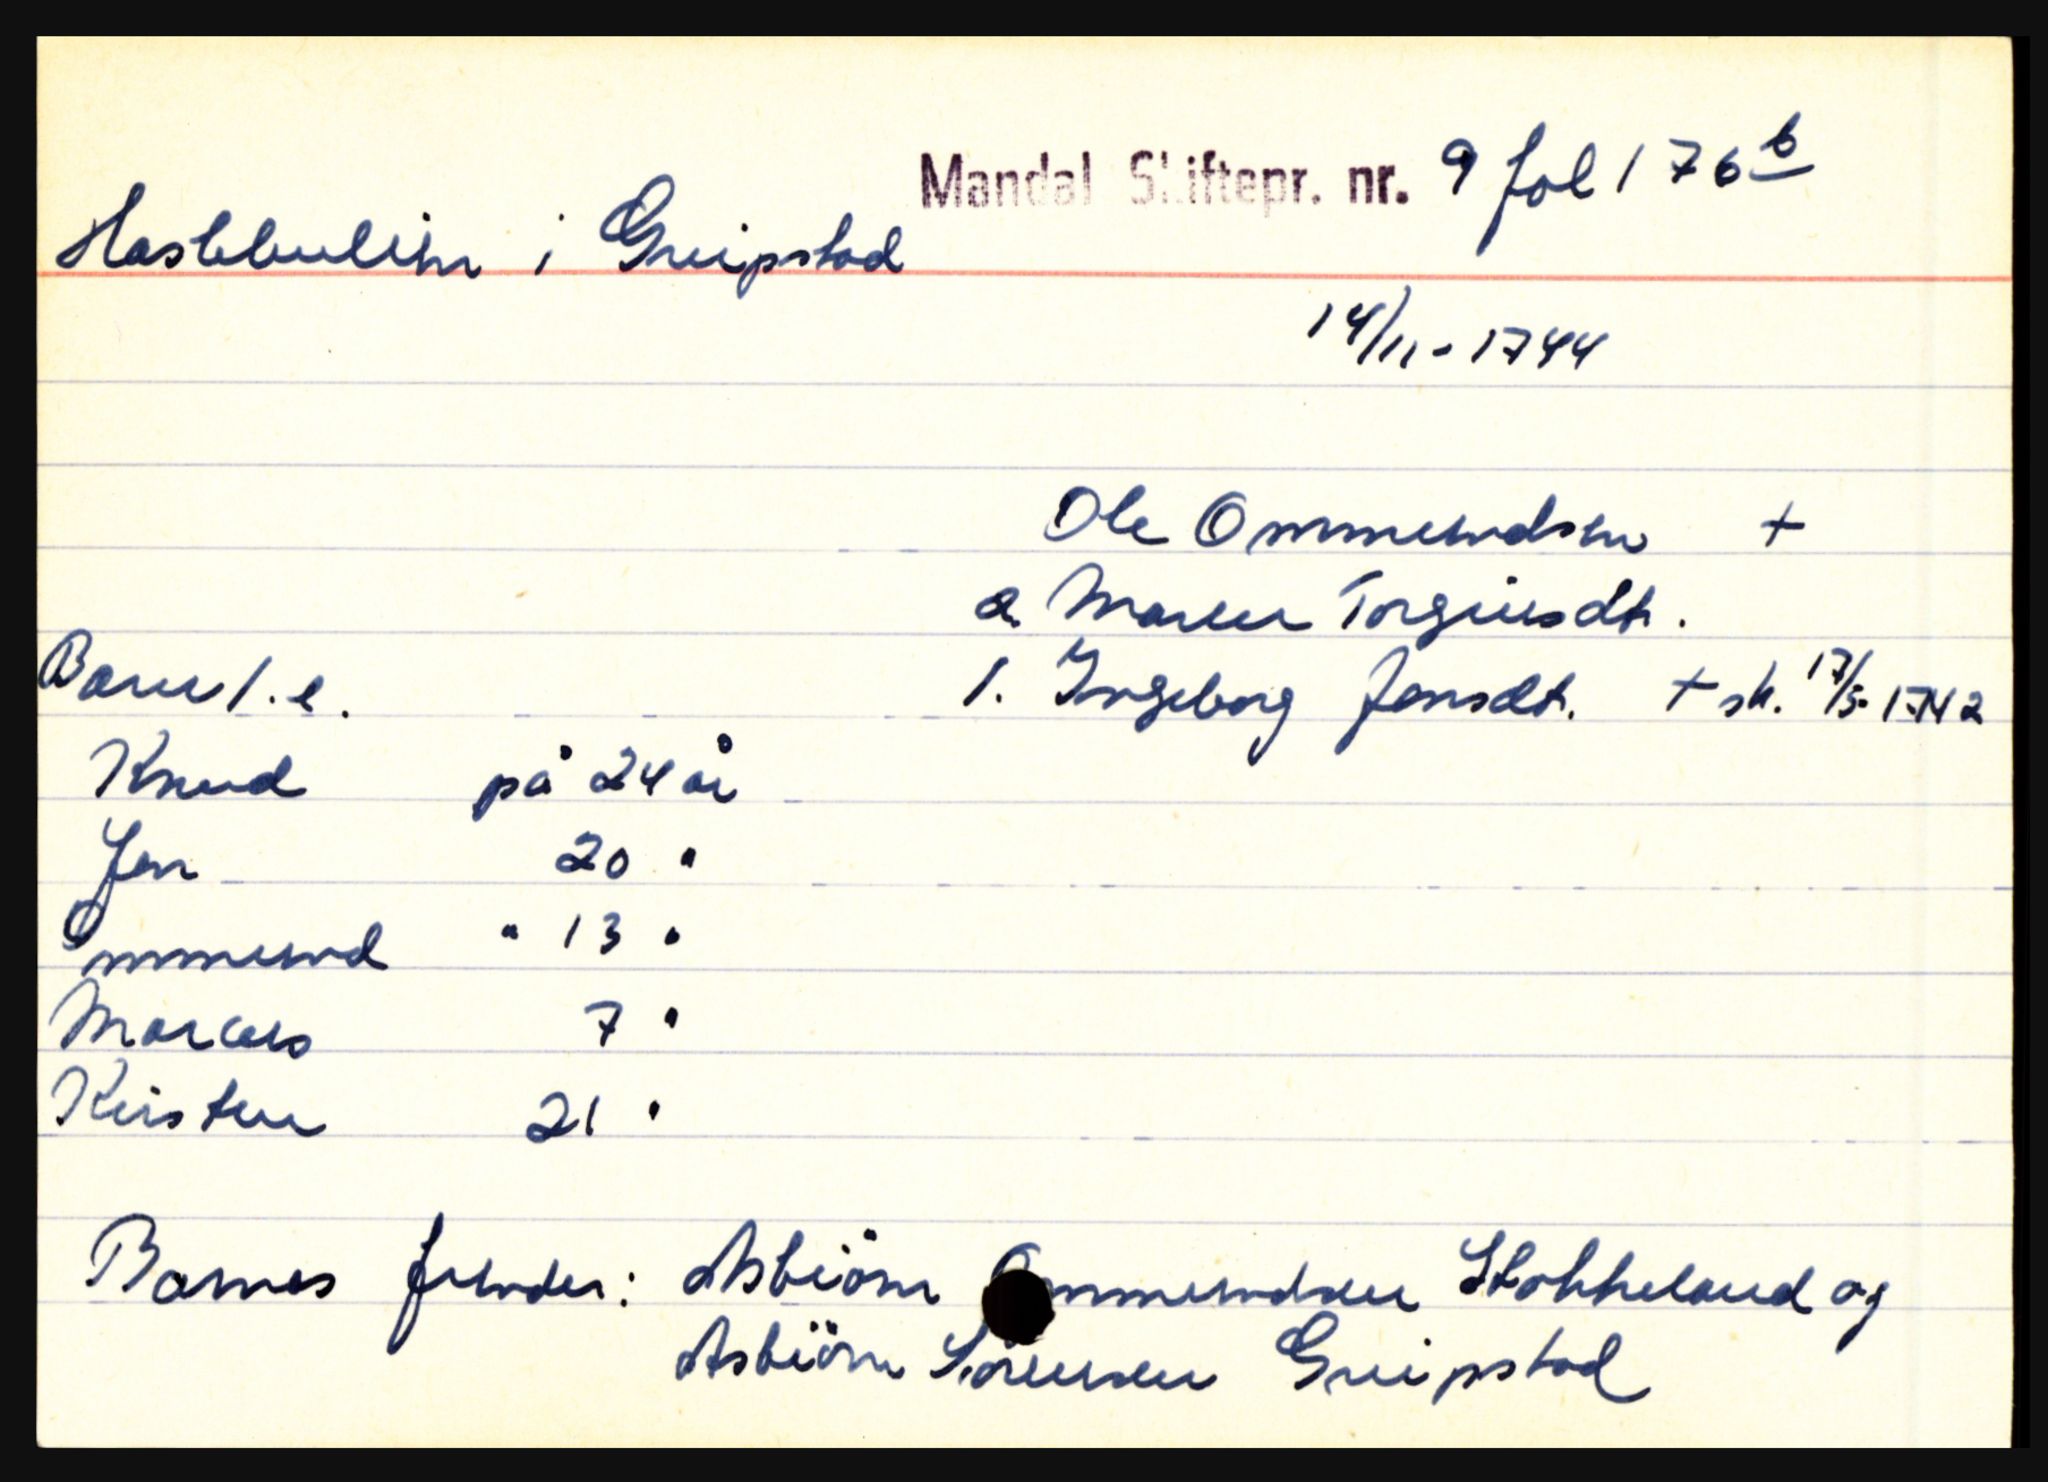 Mandal Skiftepr. nr. 9 fol 176 b
Haskbulihn i Greipstad
14/11-1744
Ole Ommundsen +
2. Maren Torgiusdt.
Barn 1. e. 1. Ingeborg Jonsdt. + sk. 17/5-1742
Knud på 24 år
Jon 20 "
Ommund " 13 "
Marcus 7 "
Kirsten 21 "
Barnes frender: Asbiörn Ommundsen Stokkeland og
Asbiörn Sörensen Greipstad